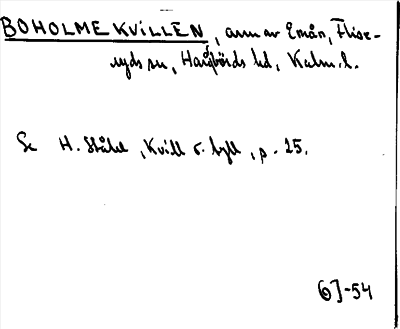 BOHOLMEKVILLEN, arm av Emån, Flise-
ryds sn, Handbörds hd, Kalm. l.
Se H. Ståhl, Kvill o. hyll, p. 25.
6J-54